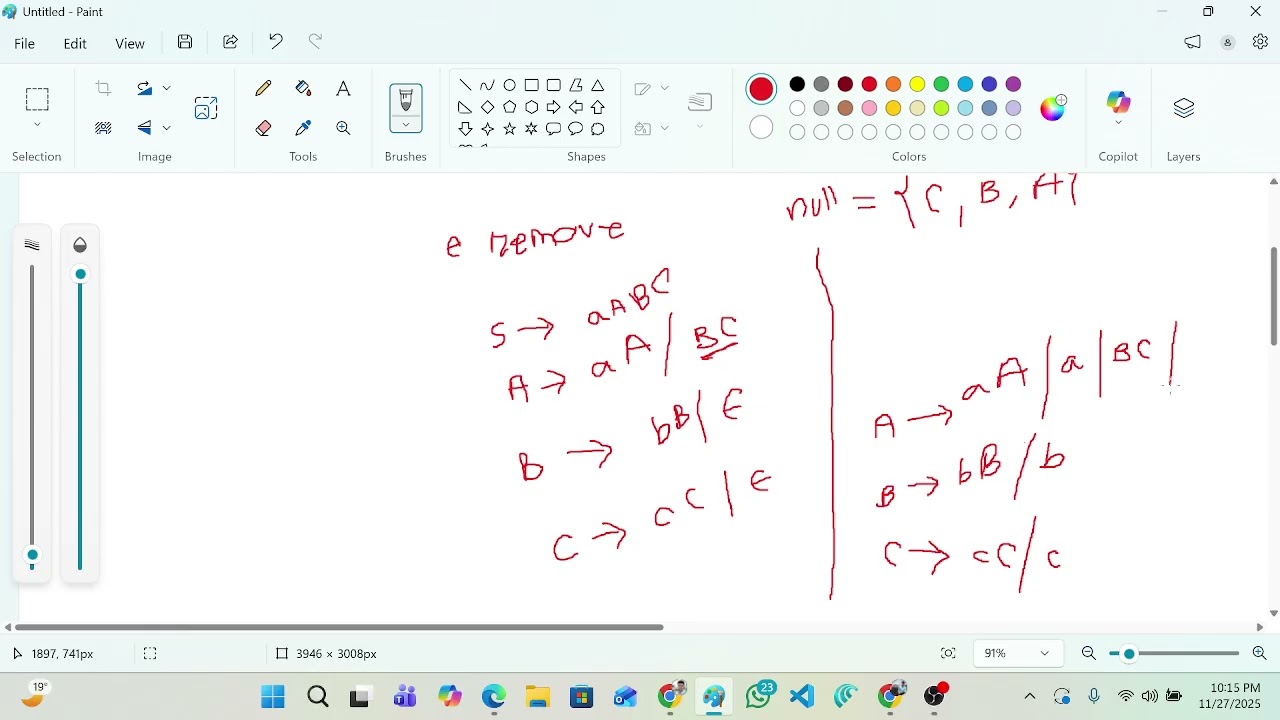 Untitled - Paint
File Edit View
Selection Image Tools Brushes Shapes Colors Copilot Layers
null = {C, B, A}
e remove
S → aABC
A → aA | BC
B → bB | ε
C → cC | ε
A → aA | a | BC |
B → bB | b
C → cC | c
1897, 741px 3946 × 3008px 91%
19°
23
10:15 PM
11/27/2025